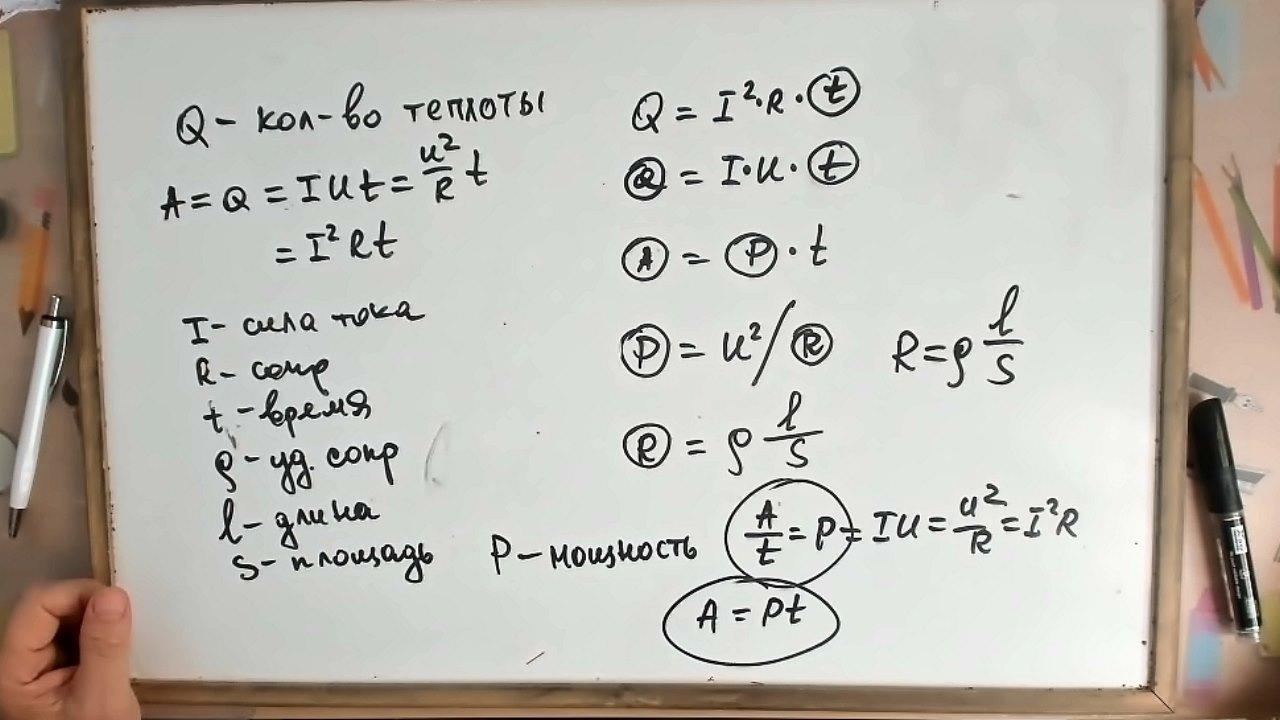 Q - кол-во теплоты
A = Q = I U t = U²/R t
= I² R t
I - сила тока
R - сопр
t - время
ρ - уд. сопр
l - длина
S - площадь
Q = I² · R · t
Q = I · U · t
A = P · t
P = U² / R
R = ρ l/S
R = ρ l/S
P - мощность
A/t = P = IU = U²/R = I²R
A = Pt